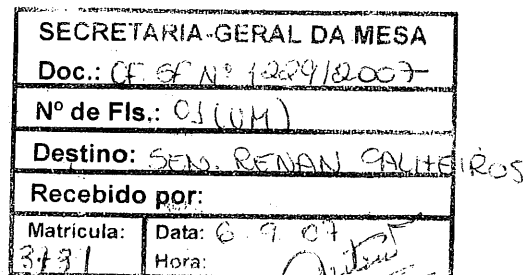 SECRETARIA-GERAL DA MESA
Doc.: CF SF Nº 1229/2007
Nº de Fls.: 01 (UM)
Destino: SEN. RENAN CALHEIROS
Recebido por:
Matricula: 3731 Data: 6 9 07
Hora: